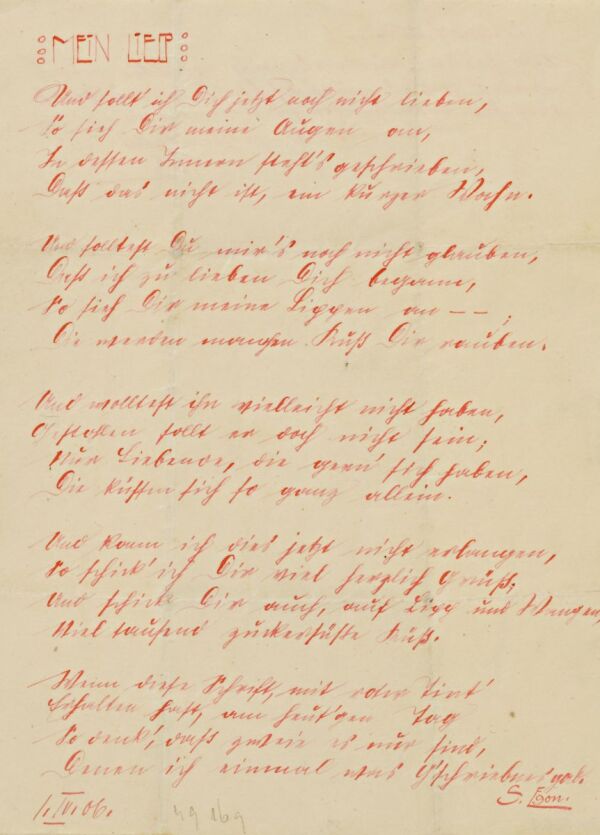 MEIN LIEB
Und sollt' ich Dich jetzt noch nicht lieben,
So sieh Dir meine Augen an,
In dessen Innern steht's geschrieben,
Daß das nicht ist, ein kurzer Wahn.
Und solltest Du mir's noch nicht glauben,
Daß ich zu lieben Dich begann,
So sieh Dir meine Lippen an — — ;
Die werden manchen Kuß Dir rauben.
Und wolltest ihn vielleicht nicht haben,
Gestohlen sollt er doch nicht sein;
Nur Liebende, die gern' sich haben,
Die küssen sich so ganz allein.
Und kann ich dies jetzt nicht erlangen,
So schick' ich Dir viel herzlich Grüß;
Und schick Dir auch, auf Lipp und Wangen,
Viel tausend zuckersüße Küß.
Wenn diese Schrift, mit roter Tint'
Erhalten hast, am heut'gen Tag
So denk', daß zweie es nur sind,
Denen ich einmal was G'schriebnes gab.
S. Egon.
1. IV. 06.
49 169